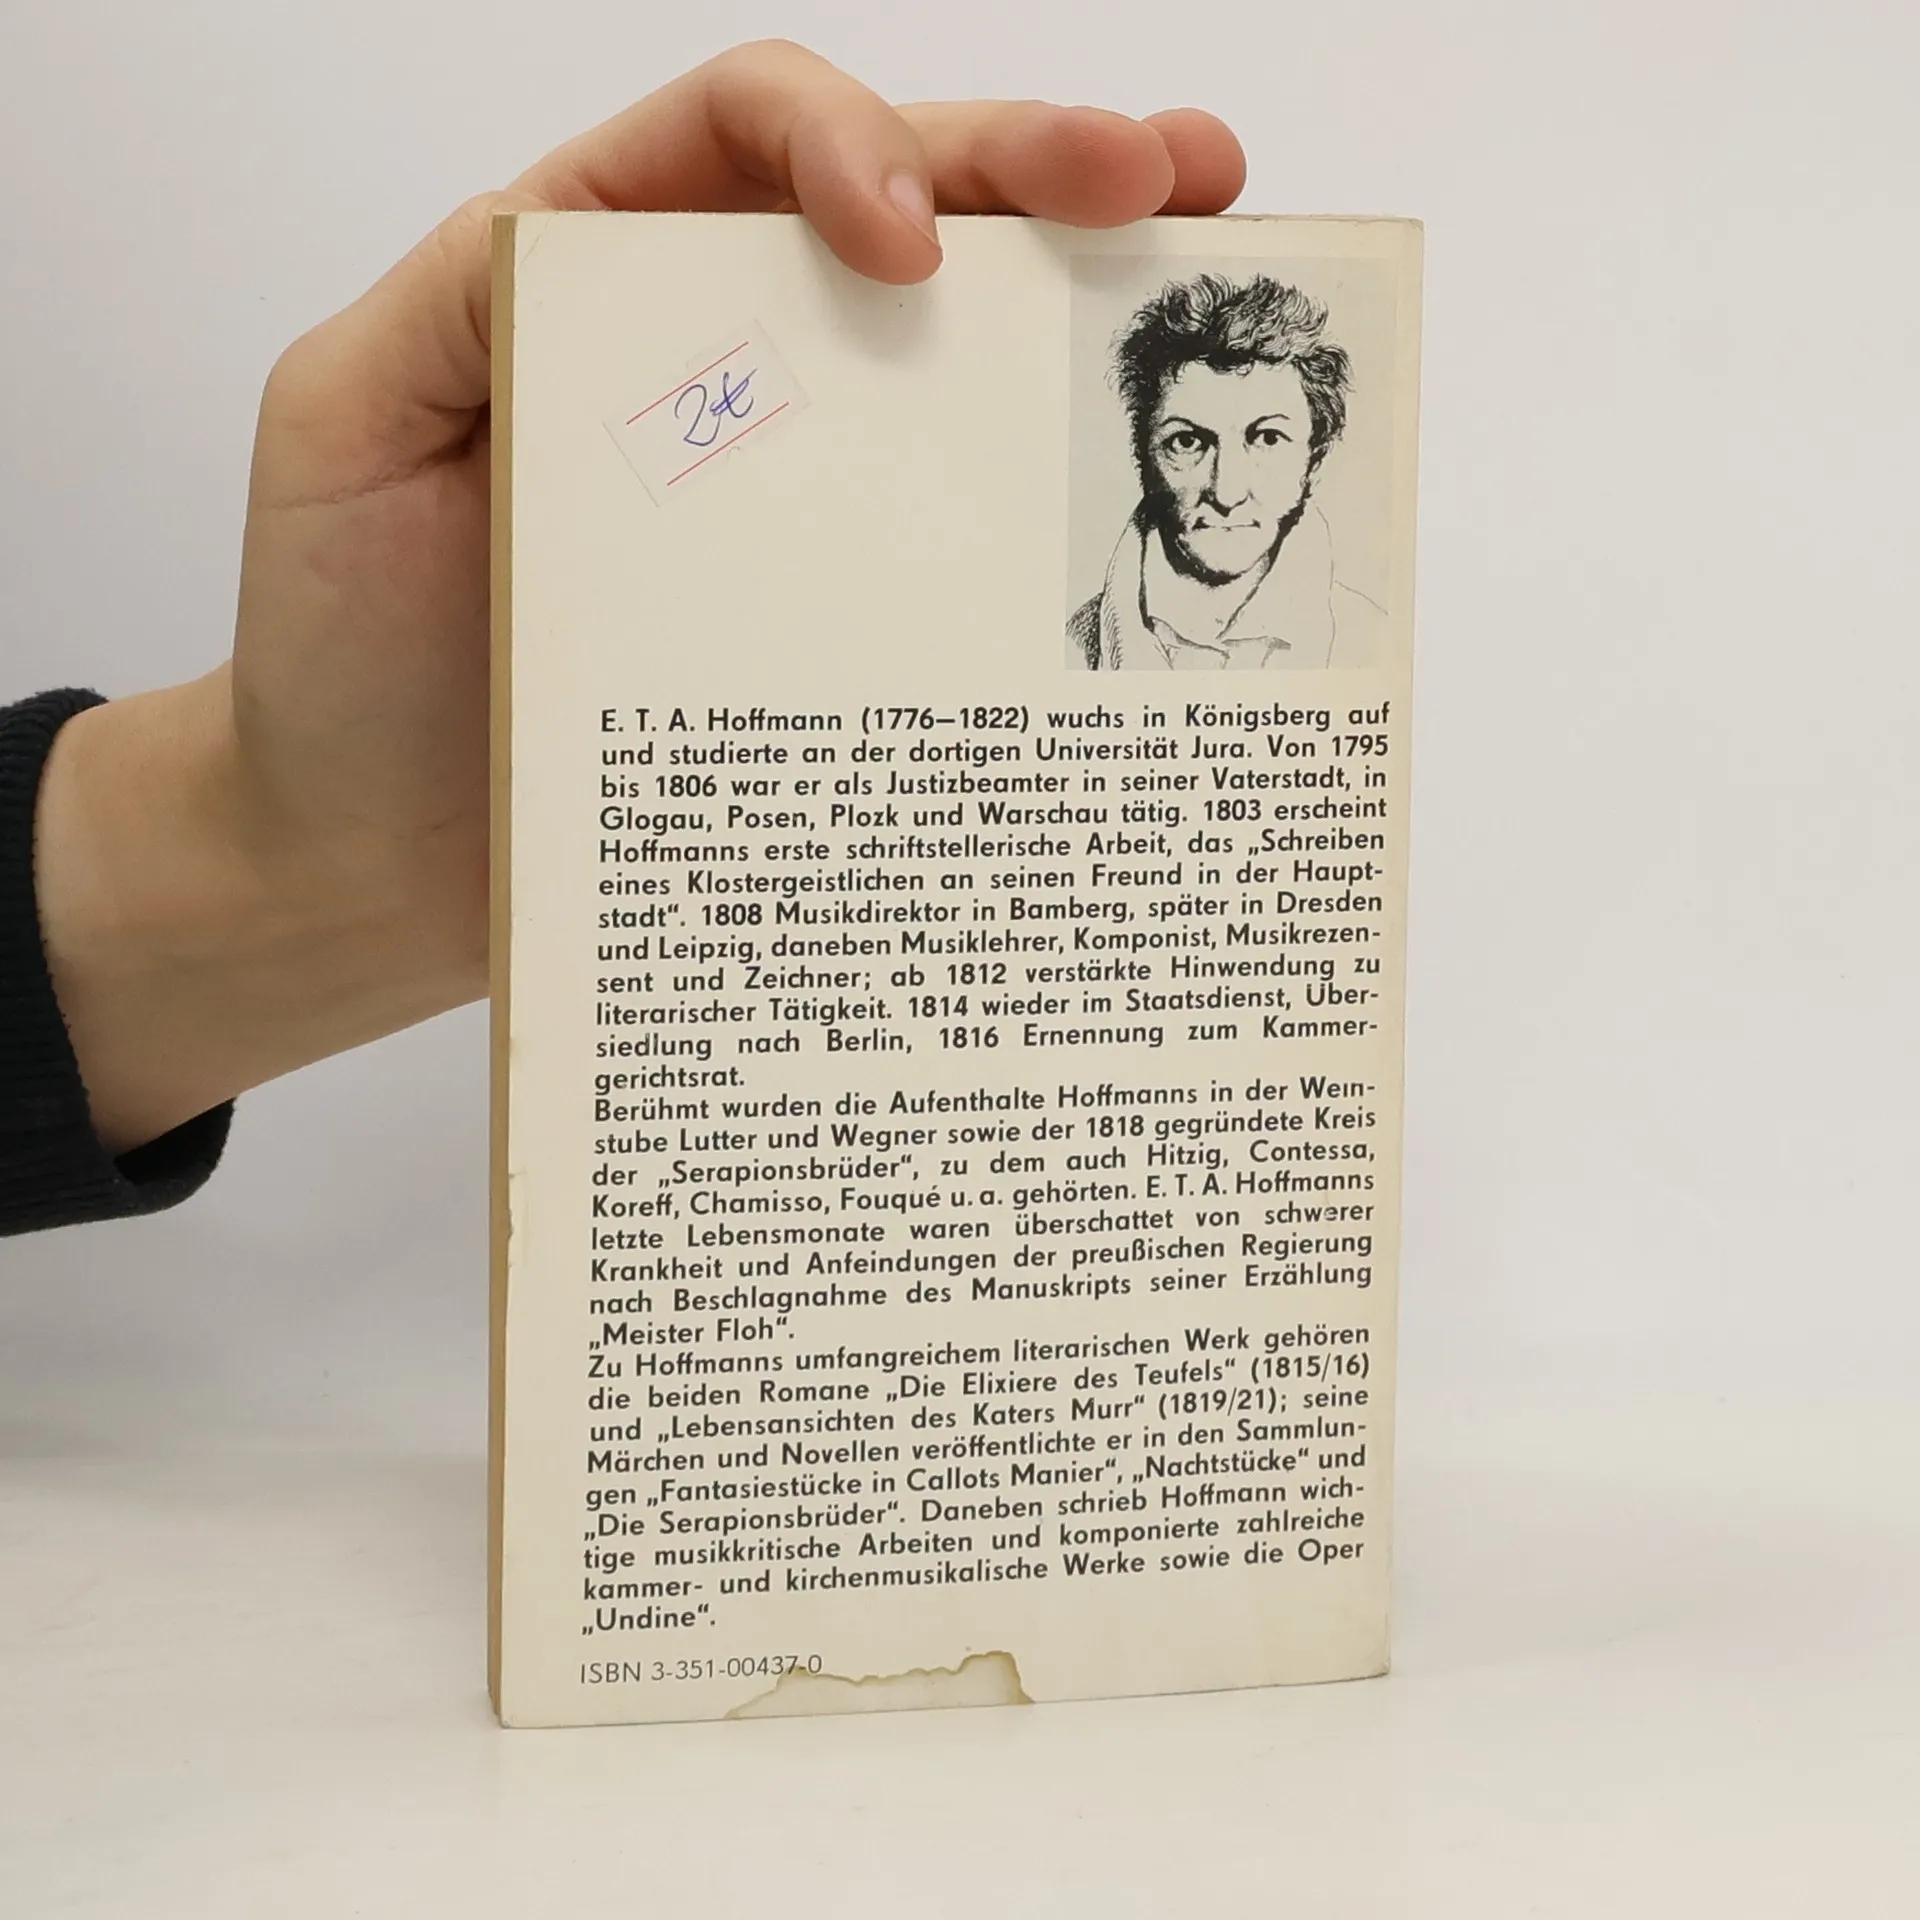 2€
E. T. A. Hoffmann (1776–1822) wuchs in Königsberg auf
und studierte an der dortigen Universität Jura. Von 1795
bis 1806 war er als Justizbeamter in seiner Vaterstadt, in
Glogau, Posen, Plozk und Warschau tätig. 1803 erscheint
Hoffmanns erste schriftstellerische Arbeit, das „Schreiben
eines Klostergeistlichen an seinen Freund in der Haupt-
stadt“. 1808 Musikdirektor in Bamberg, später in Dresden
und Leipzig, daneben Musiklehrer, Komponist, Musikrezen-
sent und Zeichner; ab 1812 verstärkte Hinwendung zu
literarischer Tätigkeit. 1814 wieder im Staatsdienst, Über-
siedlung nach Berlin, 1816 Ernennung zum Kammer-
gerichtsrat.
Berühmt wurden die Aufenthalte Hoffmanns in der Wein-
stube Lutter und Wegner sowie der 1818 gegründete Kreis
der „Serapionsbrüder“, zu dem auch Hitzig, Contessa,
Koreff, Chamisso, Fouqué u. a. gehörten. E. T. A. Hoffmanns
letzte Lebensmonate waren überschattet von schwerer
Krankheit und Anfeindungen der preußischen Regierung
nach Beschlagnahme des Manuskripts seiner Erzählung
„Meister Floh“.
Zu Hoffmanns umfangreichem literarischen Werk gehören
die beiden Romane „Die Elixiere des Teufels“ (1815/16)
und „Lebensansichten des Katers Murr“ (1819/21); seine
Märchen und Novellen veröffentlichte er in den Sammlun-
gen „Fantasiestücke in Callots Manier“, „Nachtstücke“ und
„Die Serapionsbrüder“. Daneben schrieb Hoffmann wich-
tige musikkritische Arbeiten und komponierte zahlreiche
kammer- und kirchenmusikalische Werke sowie die Oper
„Undine“.
ISBN 3-351-00437-0